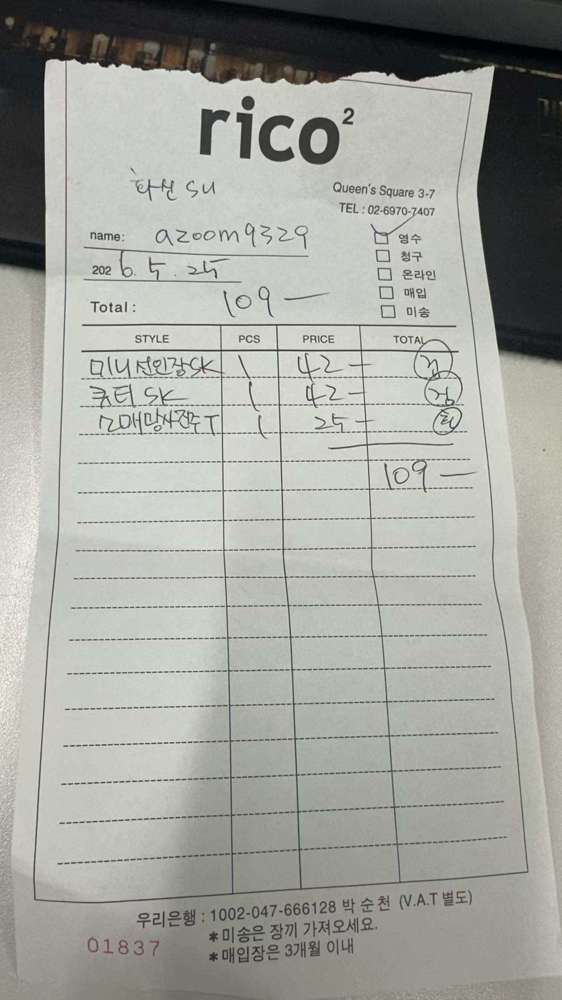 rico²
화신 SU
Queen's Square 3-7
TEL : 02-6970-7407
name: azoom9329
영수
청구
온라인
매입
미송
2026. 5. 25
Total : 109 —
STYLE PCS PRICE TOTAL
미니선인장SK 1 42 — 검
큐티 SK 1 42 — 검
망사진주T 1 25 —
109 —
우리은행 : 1002-047-666128 박 순 천 (V.A.T 별도)
01837
*미송은 장끼 가져오세요.
*매입장은 3개월 이내